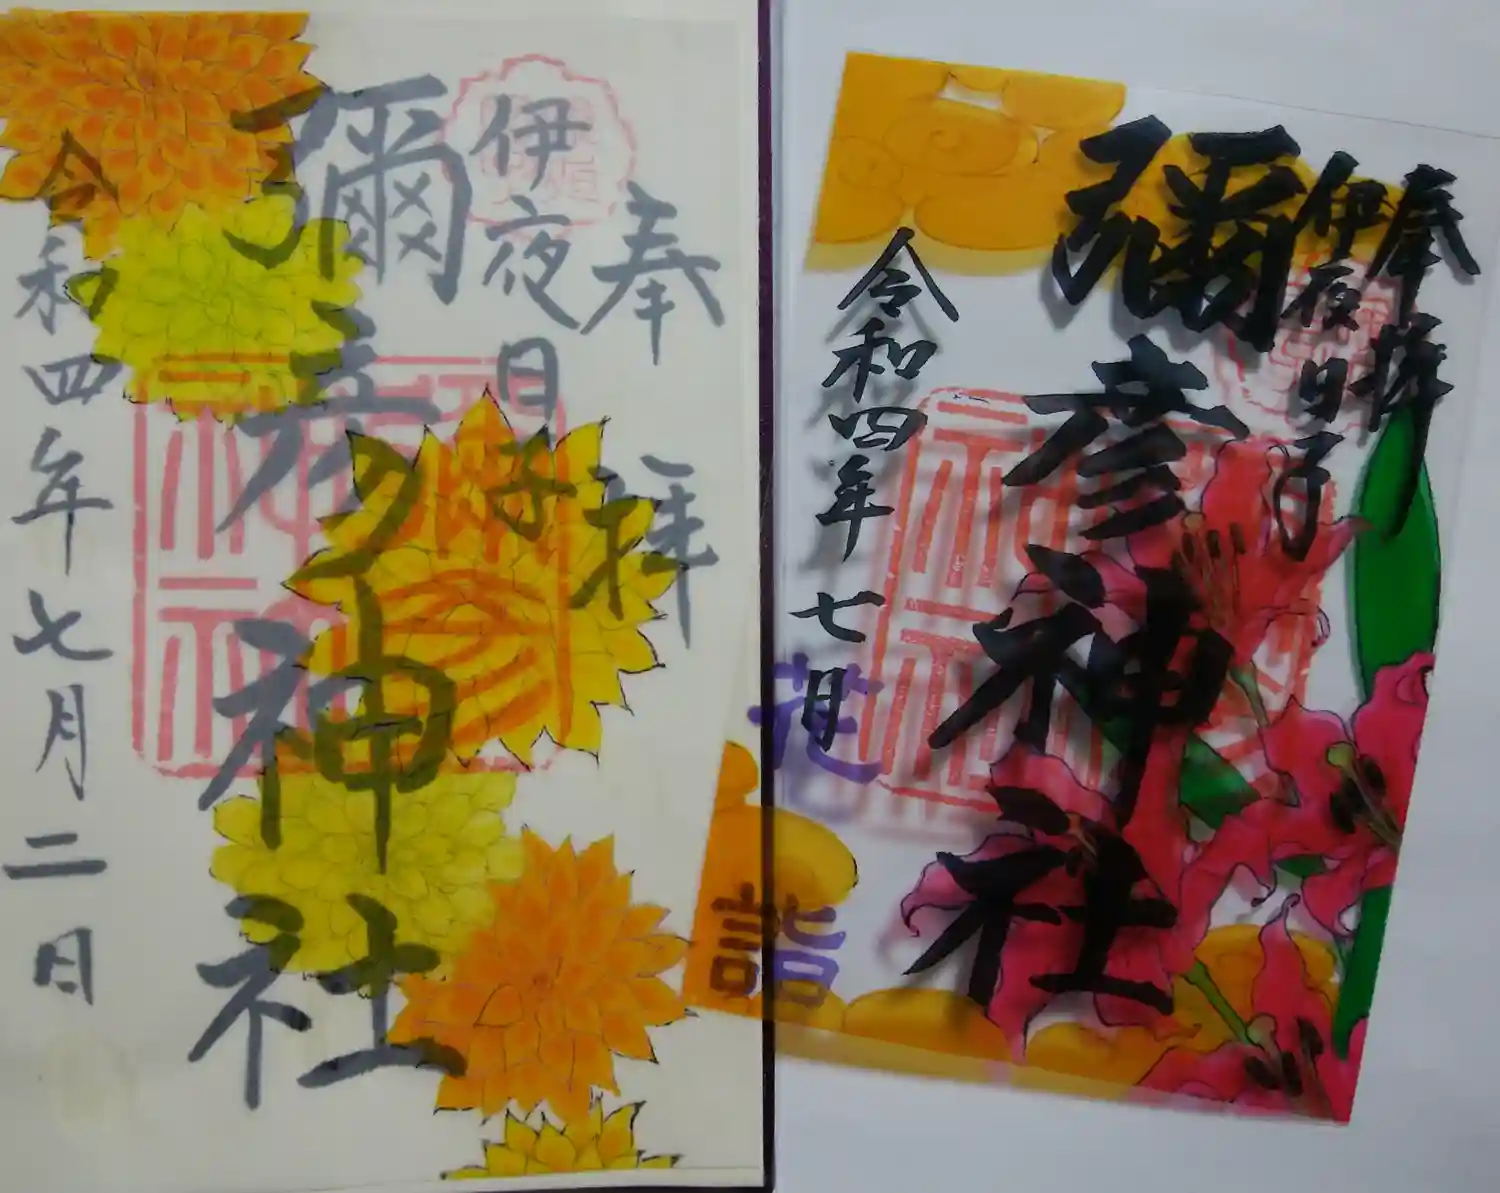 奉拝
伊夜日子
彌彦神社
令和四年七月二日
奉拝
伊夜日子
彌彦神社
令和四年七月
花詣